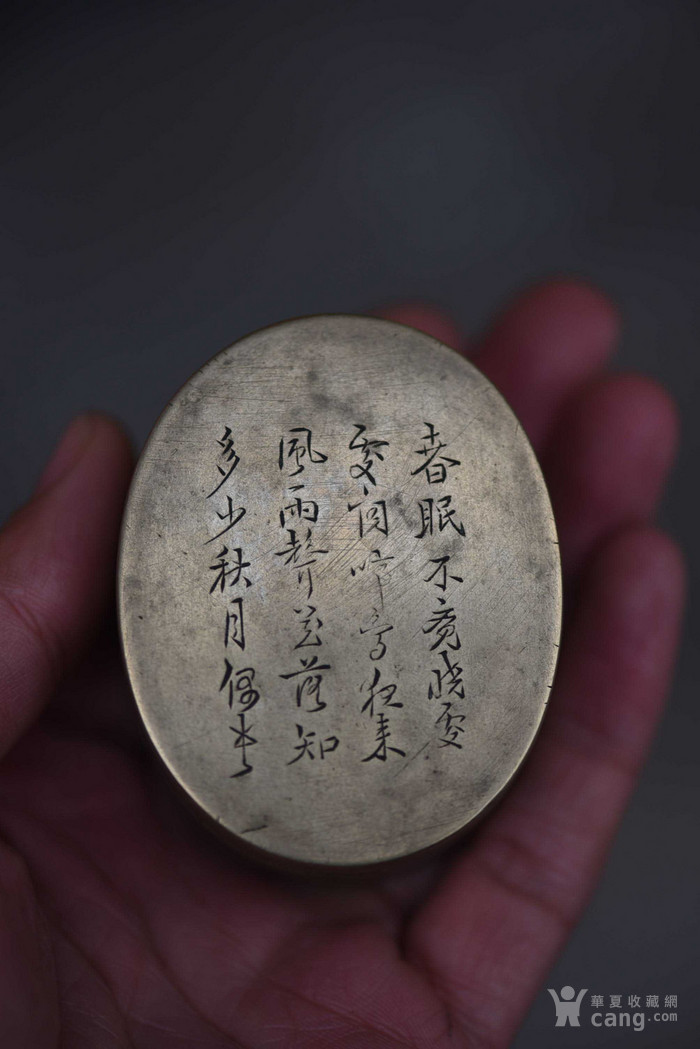 春眠不竟晓處
處闻啼鳥夜来
風雨聲花落知
多少秋月偶书
華夏收藏網
cang.com